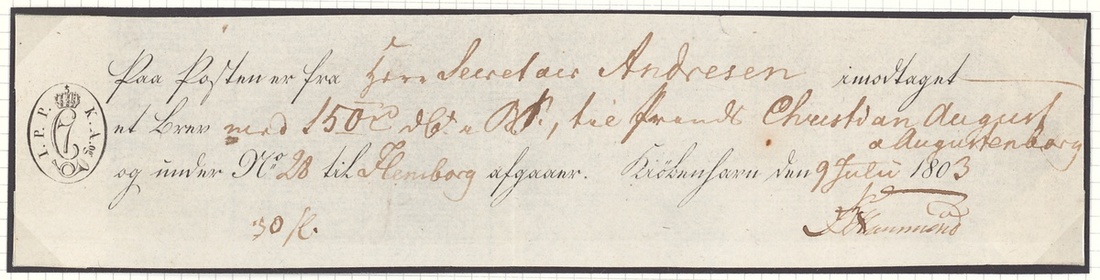 Paa Posten er fra Herr Secretair Andresen imodtaget
et Brev med 150 til Prinds Christian August
a Augustenborg
og under No 28 til Flensborg afgaaer. Kiöbenhavn den 9 Julii 1803
30 ſk.